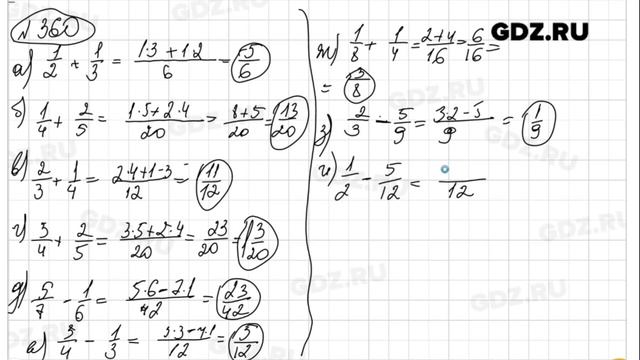 №360
а) 1/2 + 1/3 = (1·3 + 1·2)/6 = 5/6
б) 1/4 + 2/5 = (1·5 + 2·4)/20 = (8+5)/20 = 13/20
в) 2/3 + 1/4 = (2·4+1·3)/12 = 11/12
г) 3/4 + 2/5 = (3·5+2·4)/20 = 23/20 = 1 3/20
д) 5/7 - 1/6 = (5·6-7·1)/42 = 23/42
е) 3/4 - 1/3 = (3·3-4·1)/12 = 5/12
ж) 1/8 + 1/4 = (2+4)/16 = 6/16 =
= 3/8
з) 2/3 - 5/9 = (3·2-5)/9 = 1/9
и) 1/2 - 5/12 = /12
GDZ.RU
GDZ.RU
GDZ.RU
GDZ.RU
GDZ.RU
GDZ.RU